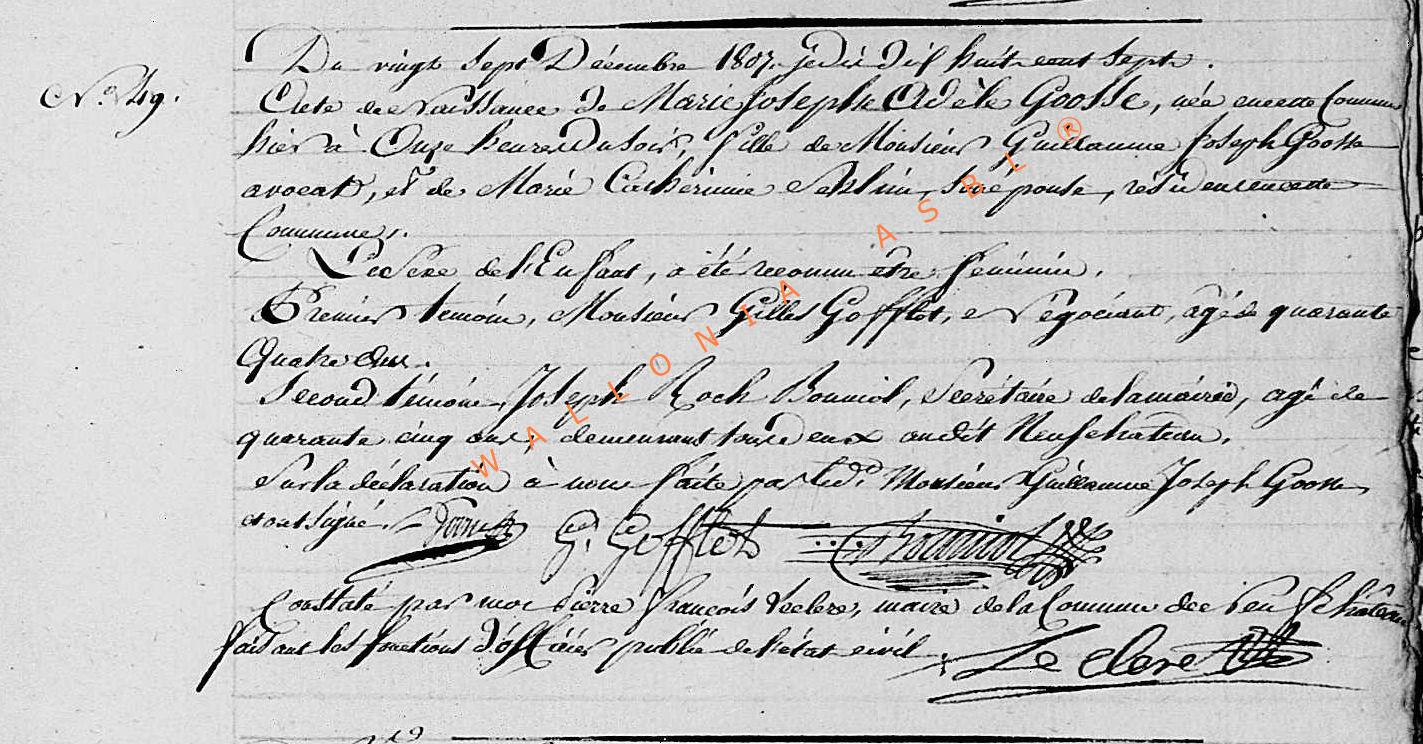 Du vingt Sept Décembre 1807. jedie dix huit cent Sept.
N.o 49. Acte de Naissance de Marie Joseph Adèle Goosse, née en cette Commune
hier à Onze heures Du soir, fille de Monsieur Guillaume Joseph Goosse
avocat, et de Marie Catherinne, Son épouse, résidens en cette
Commune.
Le Sexe de l'Enfant, a été reconnu être féminin.
Premier temoin, Monsieur Gilles Gofflot, Négociant, agé de quarante
Quatre ans.
Second témoin, Joseph Roch Bouniol, Secrétaire de la mairie, agé de
quarante cinq ans, demeurant tous deux audit Neufchateau.
Sur la déclaration à nous faite par led. Monsieur Guillaume Joseph Goosse
et ont Signé. G. Gofflot Bouniol
Constaté par moi Pierre françois Leclerc, maire de la Commune de Neufchateau
faisant les fonctions d'officier public de l'état civil. Le clerc
WALLONIA ASBL ®